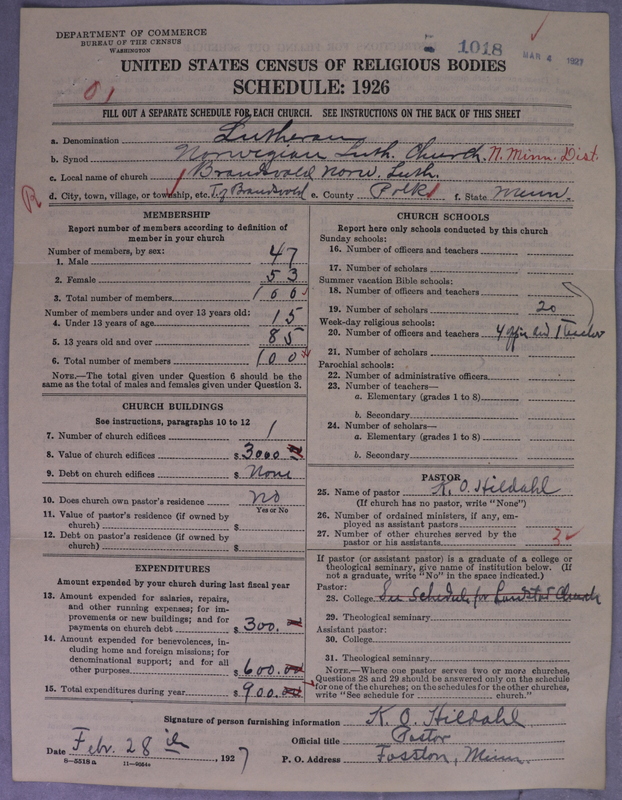 DEPARTMENT OF COMMERCE
BUREAU OF THE CENSUS
WASHINGTON
1018
MAR 4 1927
UNITED STATES CENSUS OF RELIGIOUS BODIES
SCHEDULE: 1926
01
FILL OUT A SEPARATE SCHEDULE FOR EACH CHURCH. SEE INSTRUCTIONS ON THE BACK OF THIS SHEET
a. Denomination Lutheran
b. Synod Norwegian Luth. Church. N. Minn. Dist.
c. Local name of church Brandsvold Norw. Luth.
R d. City, town, village, or township, etc. Tp Brandsvold e. County Polk f. State Minn.
MEMBERSHIP
Report number of members according to definition of
member in your church
Number of members, by sex:
1. Male 47
2. Female 53
3. Total number of members 100
Number of members under and over 13 years old:
4. Under 13 years of age 15
5. 13 years old and over 85
6. Total number of members 100
NOTE.—The total given under Question 6 should be the
same as the total of males and females given under Question 3.
CHURCH BUILDINGS
See instructions, paragraphs 10 to 12
7. Number of church edifices 1
8. Value of church edifices $ 3000
9. Debt on church edifices $ None
10. Does church own pastor's residence No
Yes or No
11. Value of pastor's residence (if owned by
church) $
12. Debt on pastor's residence (if owned by
church) $
EXPENDITURES
Amount expended by your church during last fiscal year
13. Amount expended for salaries, repairs,
and other running expenses; for im-
provements or new buildings; and for
payments on church debt $ 300.
14. Amount expended for benevolences, in-
cluding home and foreign missions; for
denominational support; and for all
other purposes $ 600.00
15. Total expenditures during year $ 900.
CHURCH SCHOOLS
Report here only schools conducted by this church
Sunday schools:
16. Number of officers and teachers
17. Number of scholars
Summer vacation Bible schools:
18. Number of officers and teachers
19. Number of scholars 20
Week-day religious schools:
20. Number of officers and teachers 4 offi and 1 Teacher
21. Number of scholars
Parochial schools:
22. Number of administrative officers
23. Number of teachers—
a. Elementary (grades 1 to 8)
b. Secondary
24. Number of scholars—
a. Elementary (grades 1 to 8)
b. Secondary
PASTOR
25. Name of pastor K. O. Hildahl
(If church has no pastor, write "None")
26. Number of ordained ministers, if any, em-
ployed as assistant pastors
27. Number of other churches served by the
pastor or his assistants 3
If pastor (or assistant pastor) is a graduate of a college or
theological seminary, give name of institution below. (If
not a graduate, write "No" in the space indicated.)
Pastor:
28. College See Schedule for Church
29. Theological seminary
Assistant pastor:
30. College
31. Theological seminary
NOTE.—Where one pastor serves two or more churches,
Questions 28 and 29 should be answered only on the schedule
for one of the churches; on the schedules for the other churches,
write "See schedule for church."
Signature of person furnishing information K. O. Hildahl
Official title Pastor
Date Feb. 28 th, 1927 P. O. Address Fosston, Minn.
8—5518a 11—9064a